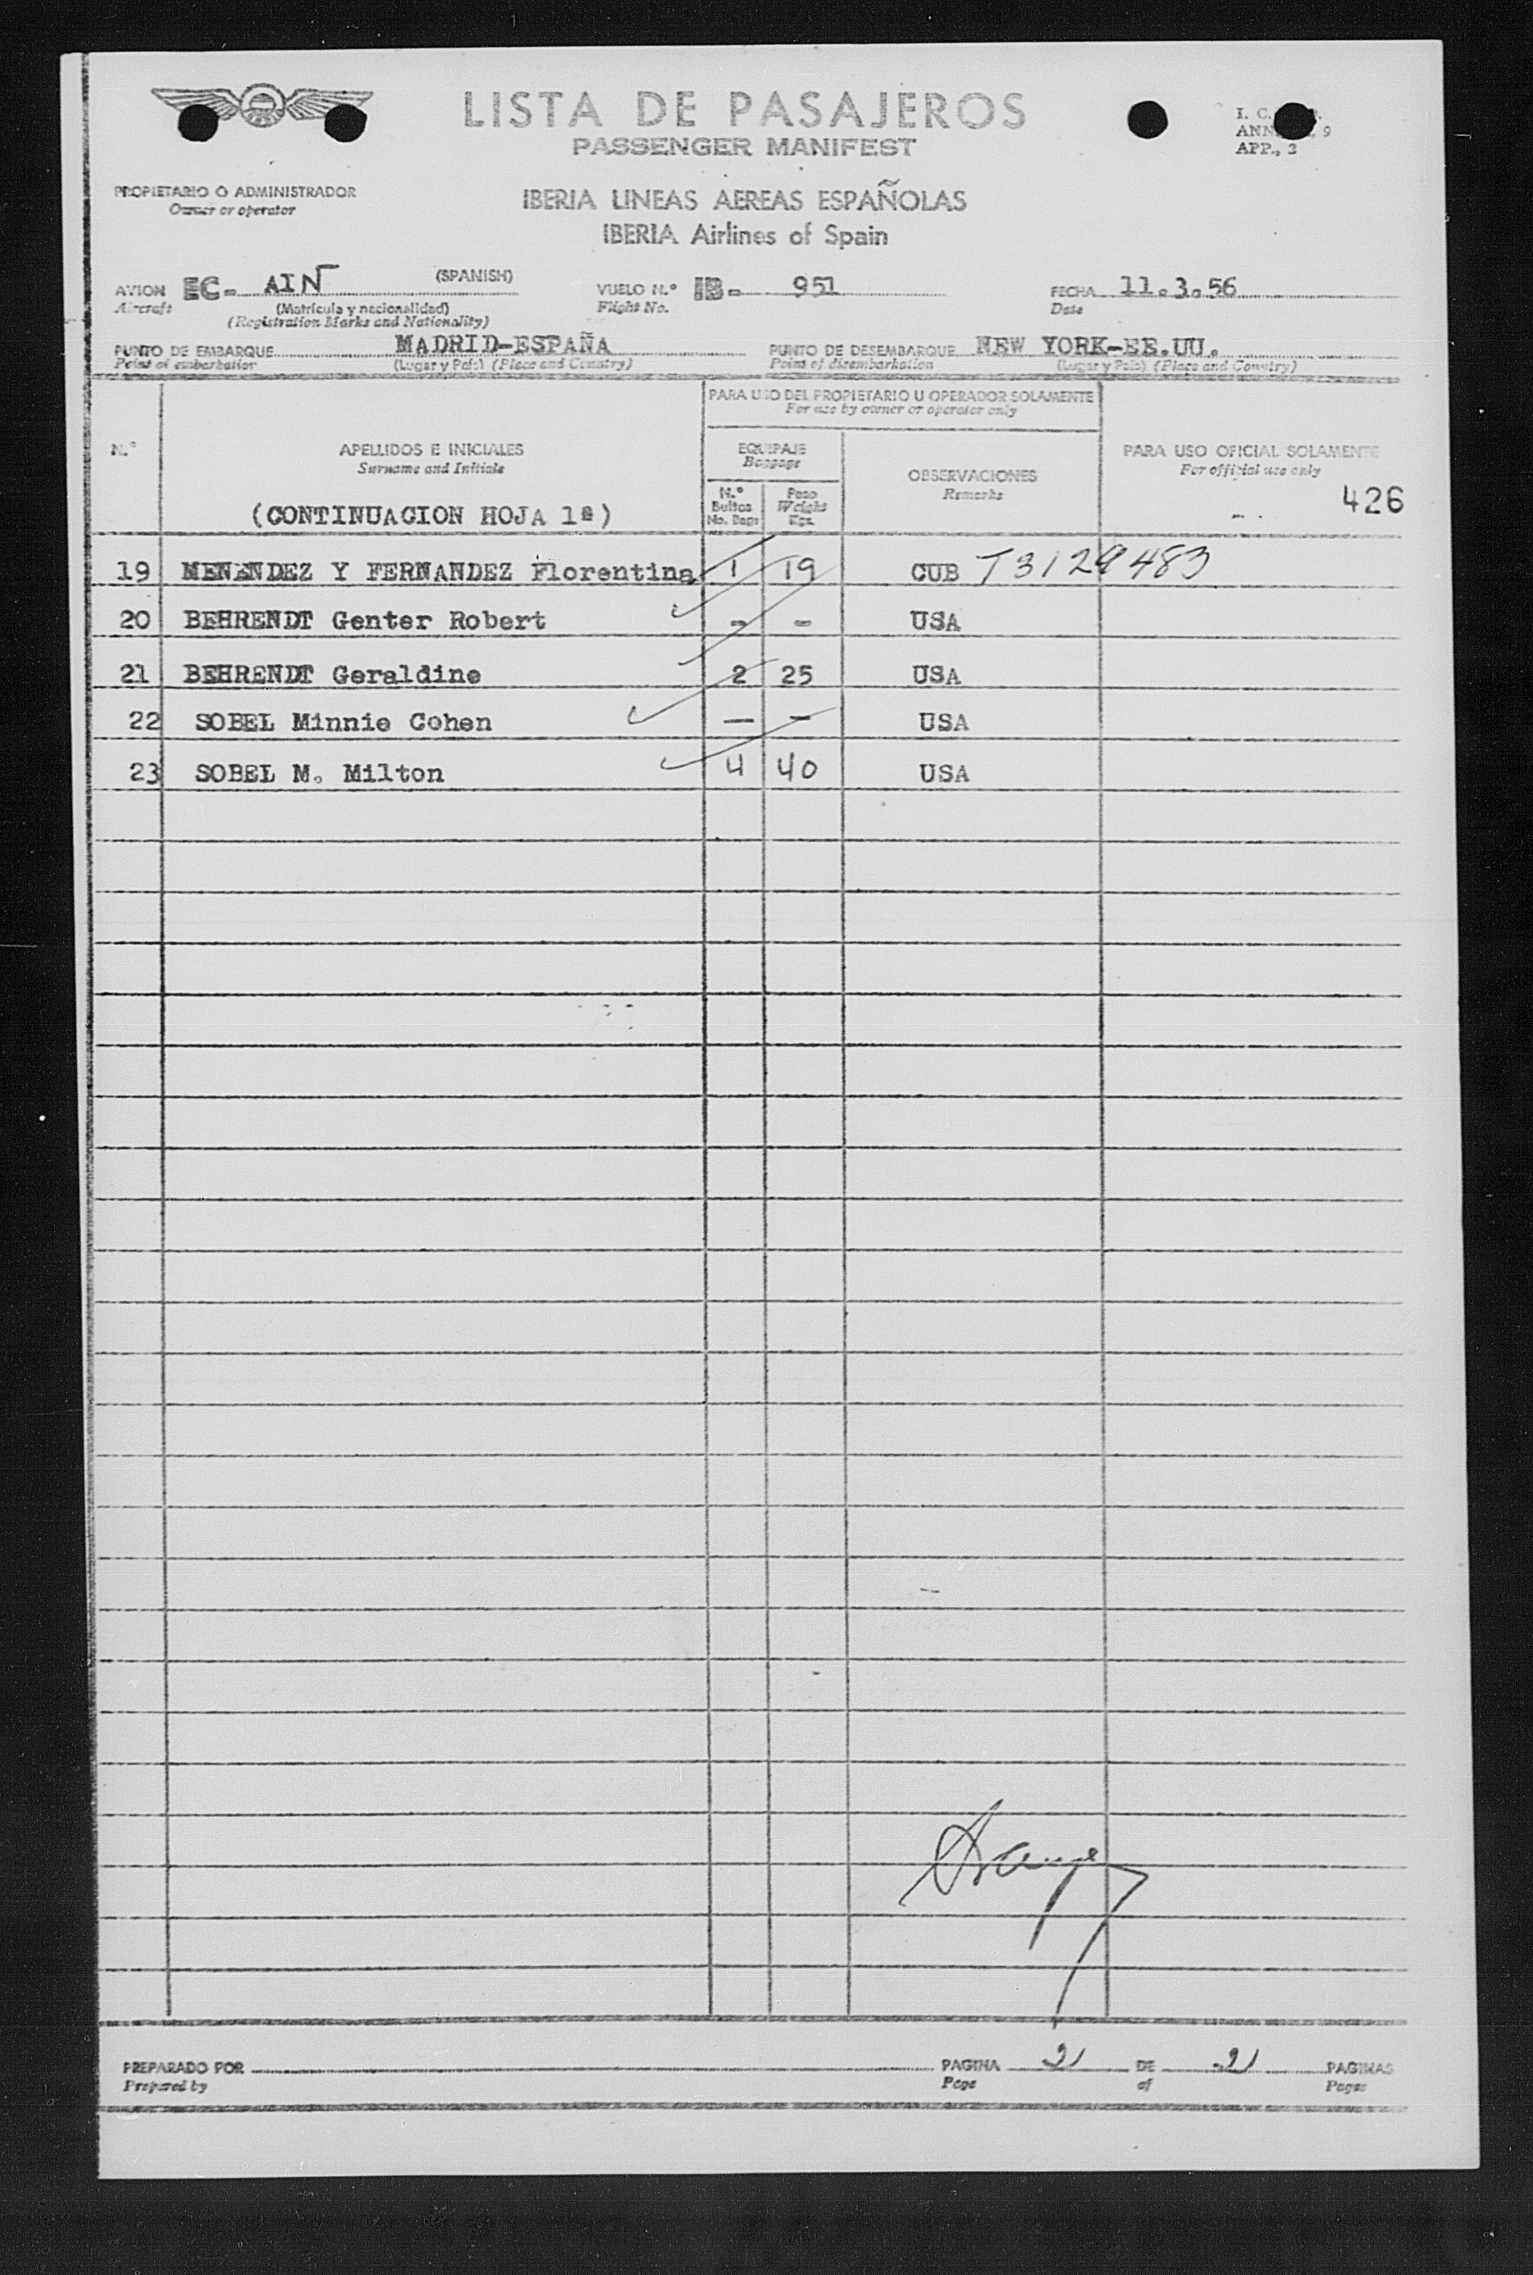 LISTA DE PASAJEROS
PASSENGER MANIFEST
I. C.
ANN. 9
APP., 3
PROPIETARIO O ADMINISTRADOR
Owner or operator
IBERIA LINEAS AEREAS ESPAÑOLAS
IBERIA Airlines of Spain
AVION EC- AIN (SPANISH) VUELO N.º IB- 951 FECHA 11.3.56
Aircraft (Matrícula y nacionalidad) Flight No. Date
(Registration Marks and Nationality)
PUNTO DE EMBARQUE MADRID-ESPAÑA PUNTO DE DESEMBARQUE NEW YORK-EE.UU.
Point of embarkation (Lugar y País) (Place and Country) Point of disembarkation (Lugar y País) (Place and Country)
PARA USO DEL PROPIETARIO U OPERADOR SOLAMENTE
For use by owner or operator only
N.º APELLIDOS E INICIALES EQUIPAJE OBSERVACIONES PARA USO OFICIAL SOLAMENTE
Surname and Initials Baggage Remarks For official use only
N.º Bultos Peso
No. Bags Weight Kgs.
(CONTINUACION HOJA 1ª) 426
19 MENENDEZ Y FERNANDEZ Florentina 1 19 CUB T3129483
20 BEHRENDT Genter Robert - - USA
21 BEHRENDT Geraldine 2 25 USA
22 SOBEL Minnie Cohen — — USA
23 SOBEL M. Milton 4 40 USA
PREPARADO POR PAGINA 2 DE 2 PAGINAS
Prepared by Page of Pages